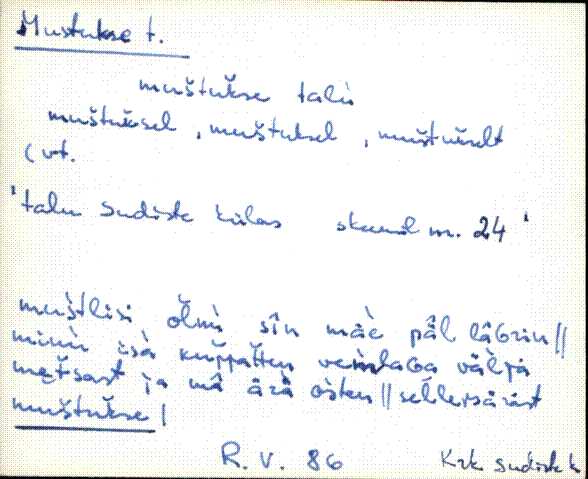 Mustukse t.
muštukse talu
muštuksel, muštuksel, muštukselt
(vt.
'talu Sudiste külas skeemil nr. 24'
muštlisi õlnì sîn mäe päl lâGrin ||
minu isà kuppatten vemlaGa väl̀ja
metsast ja mâ ärà osten ||
muštukse |
R. V. 86 Krk Sudiste k